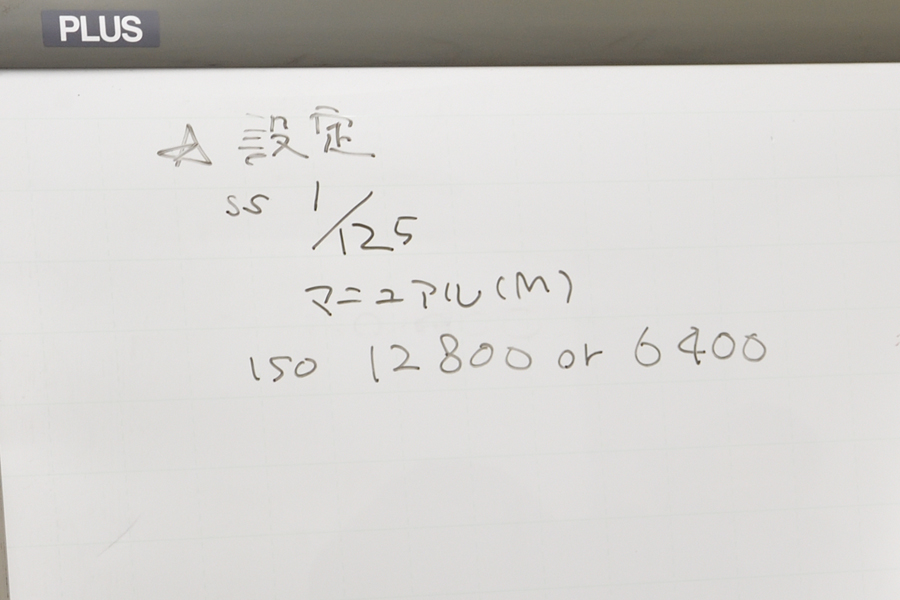 PLUS
☆ 設定
SS 1/125
マニュアル(M)
ISO 12800 or 6400